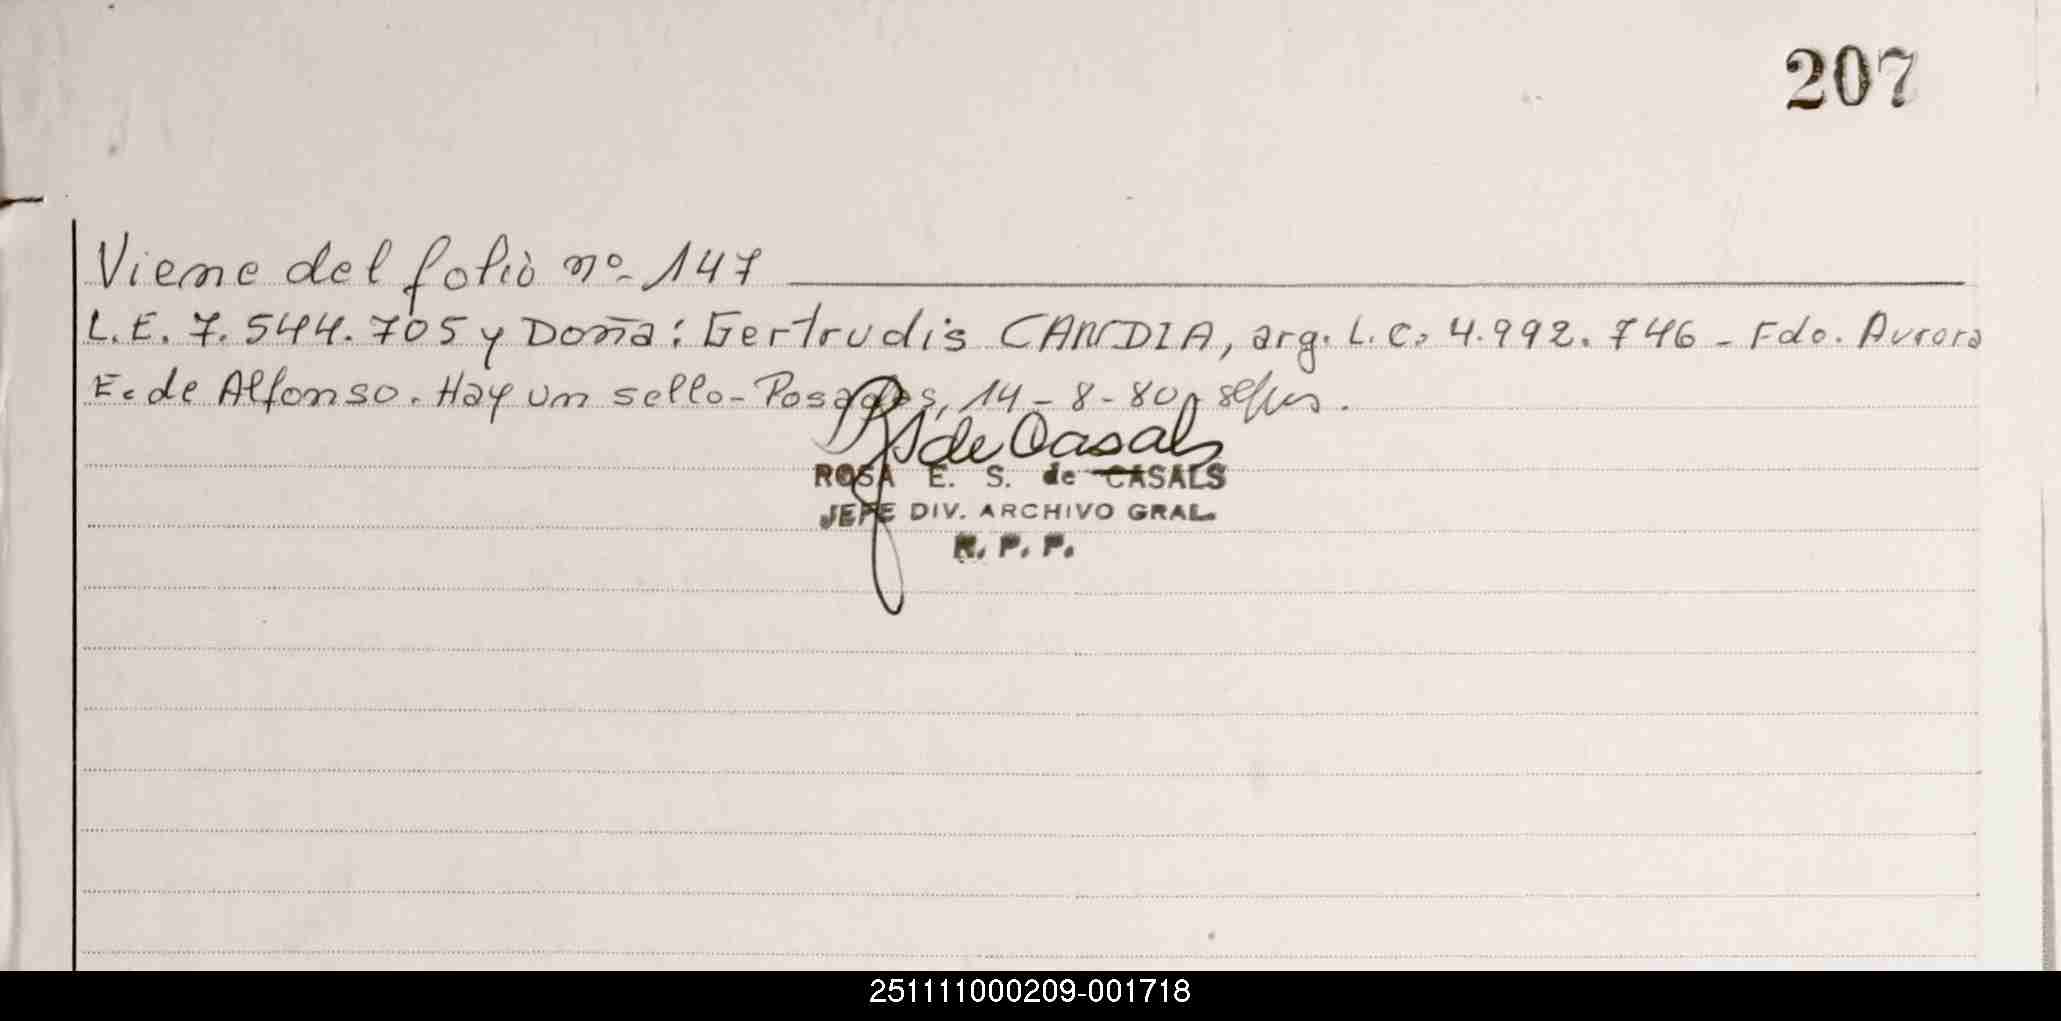 207
Viene del folio nº 147
L.E. 7.544.705 y Doña: Gertrudis CANDIA, arg. L.C. 4.992.746 - Fdo. Aurora
E. de Alfonso. Hay un sello - Posadas, 14-8-80
RS de Casals
ROSA E. S. de CASALS
JEFE DIV. ARCHIVO GRAL.
R. P. P.
251111000209-001718